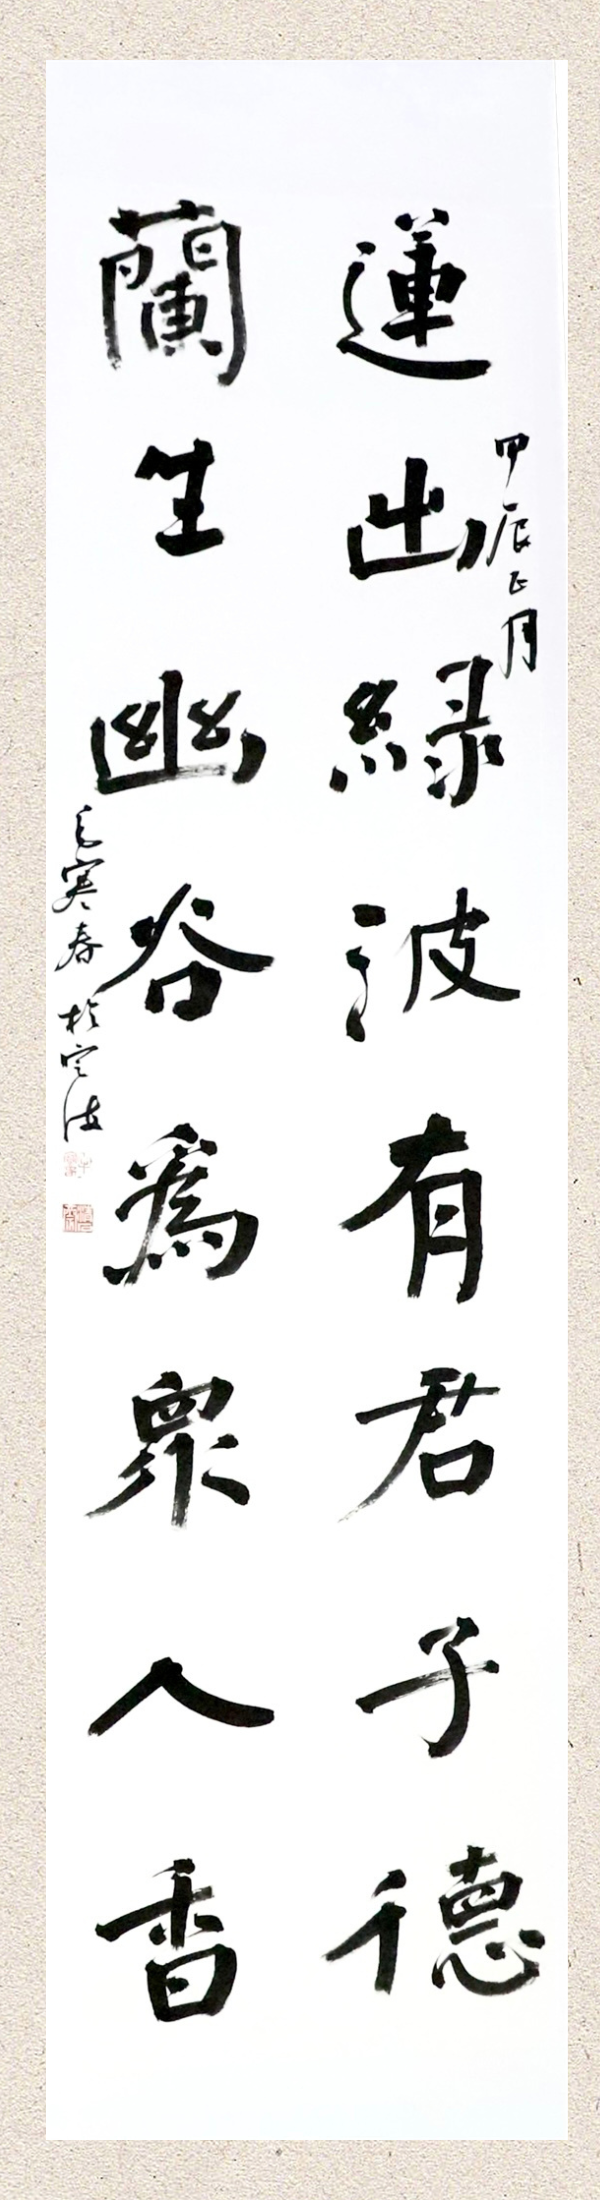 甲辰正月
蓮出緑波有君子德
蘭生幽谷為眾人香
毛寒春於定海